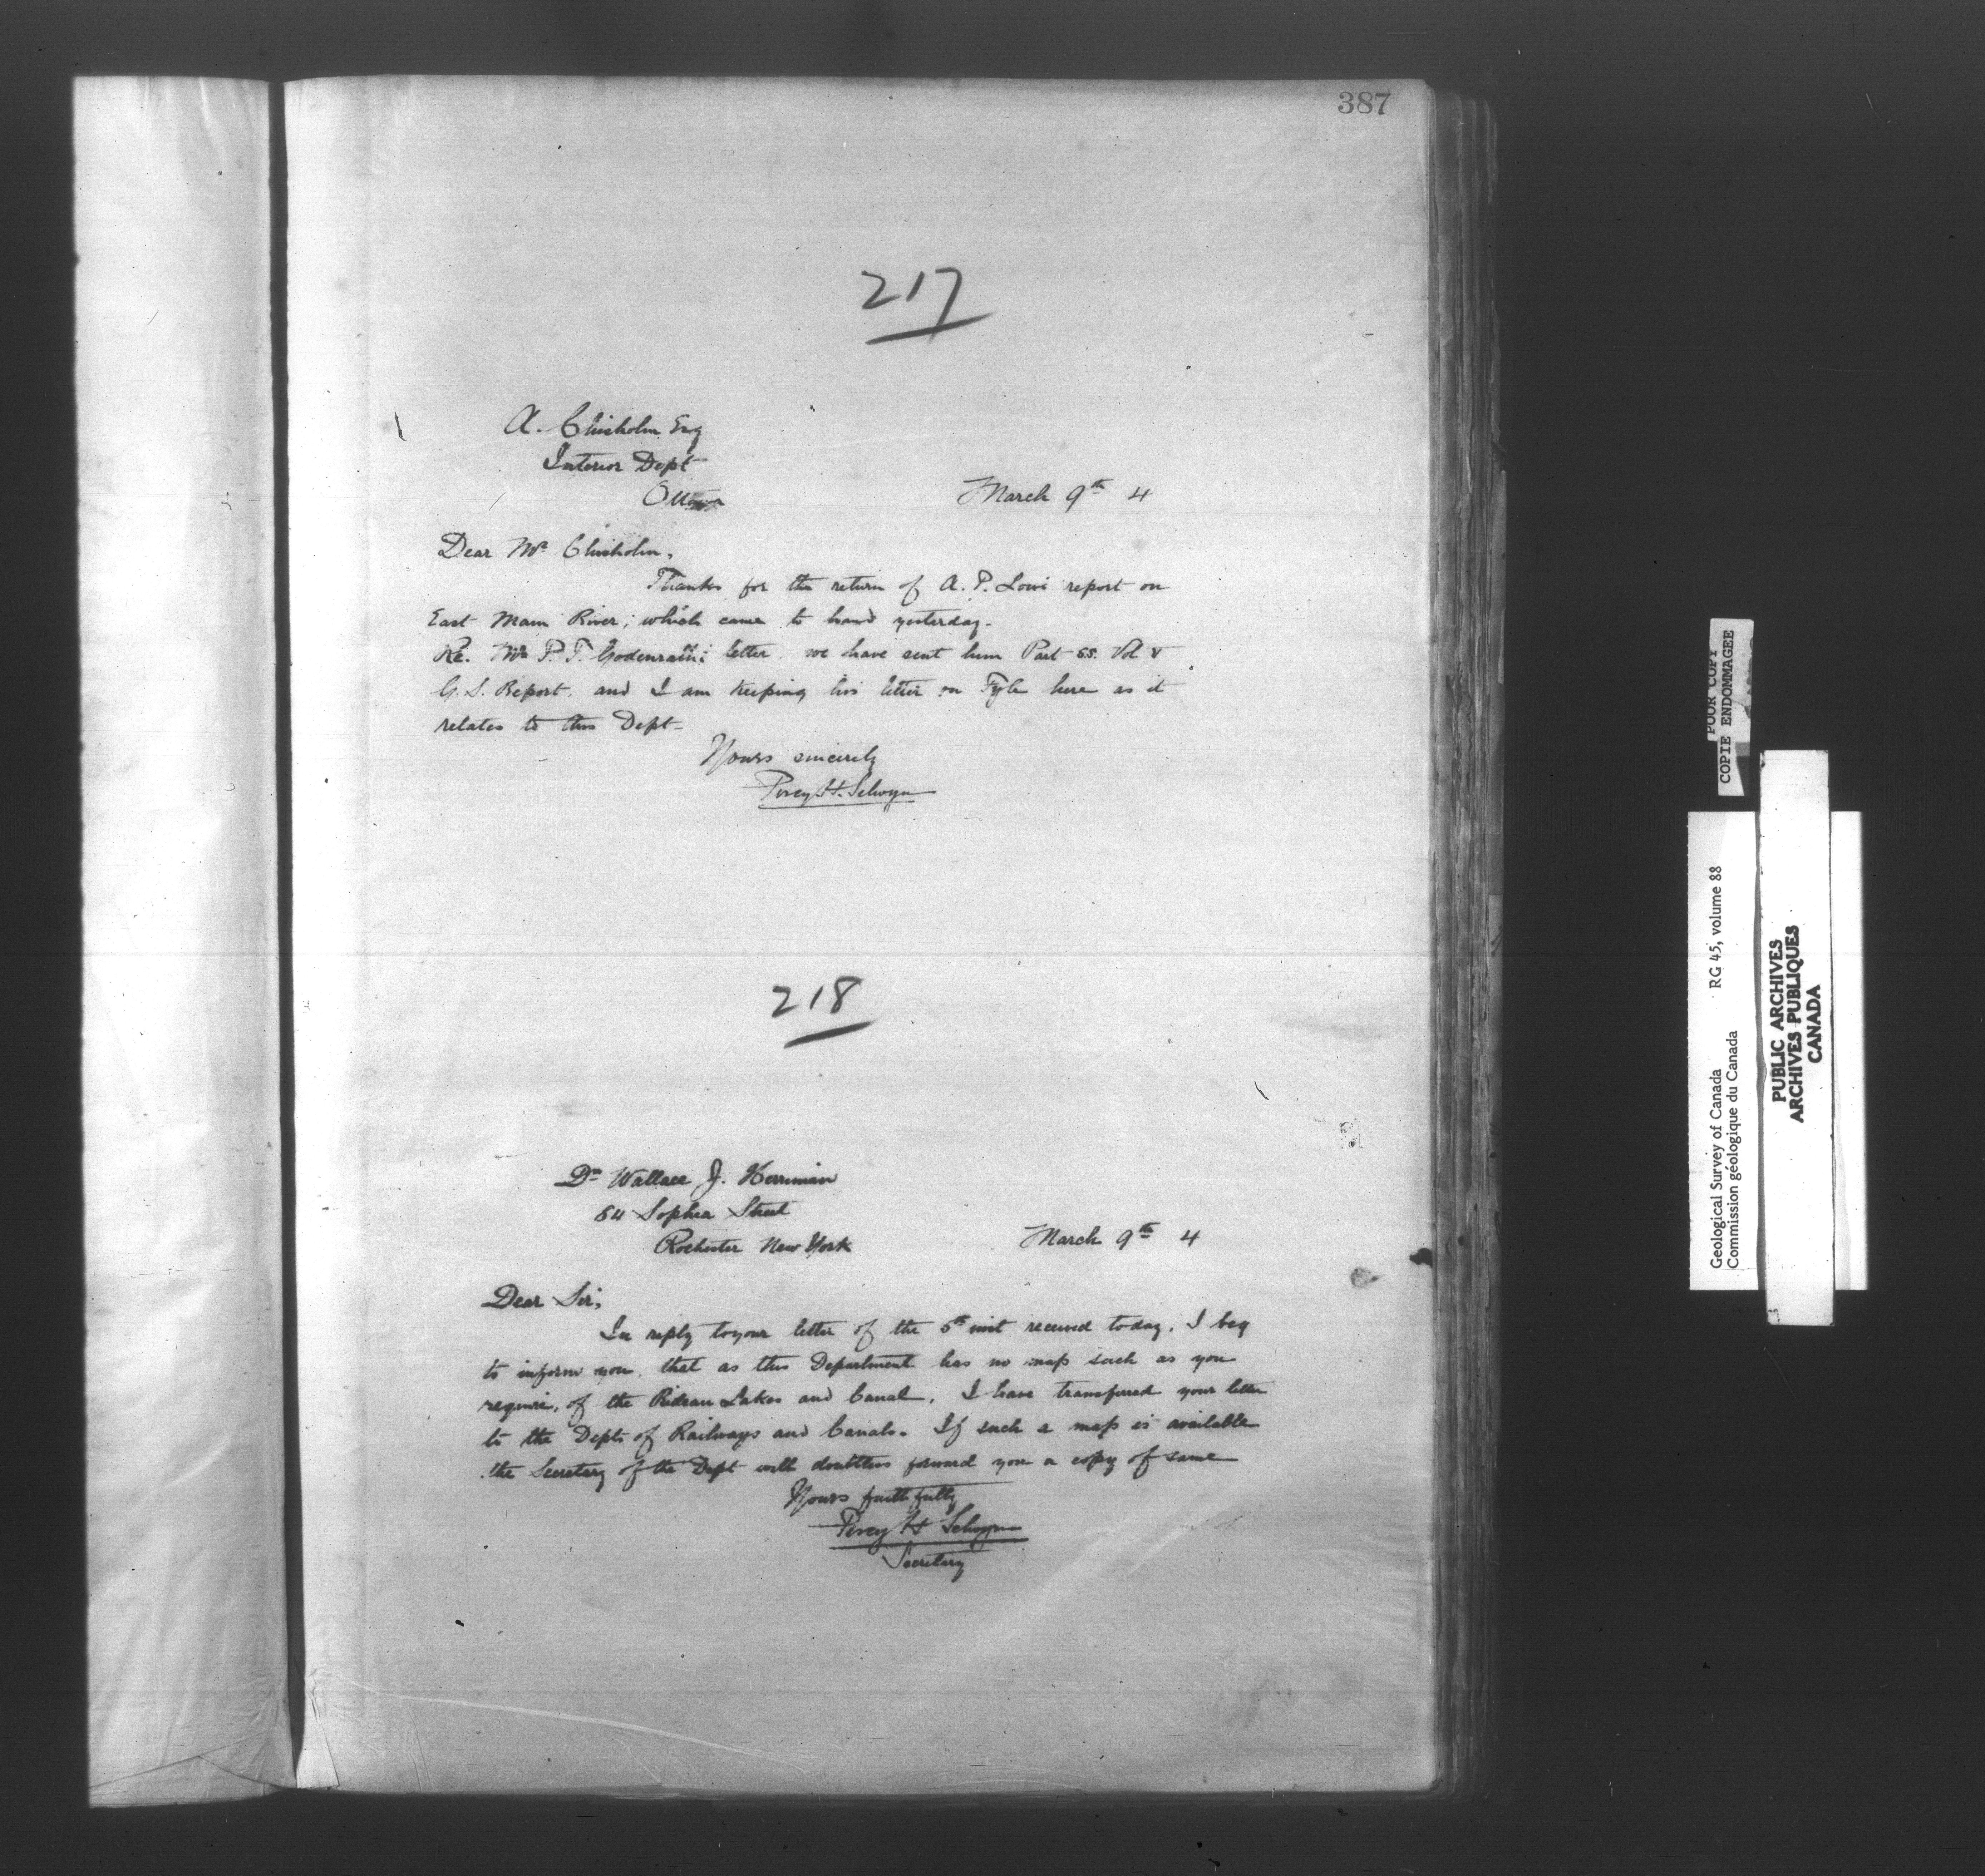 387
217
A. Chisholm Esq
Interior Dept
Ottawa
March 9th 4
Dear Mr Chisholm,
Thanks for the return of A. P. Lows report on
East Main River; which came to hand yesterday.
Re. Mr P. T. letter, we have sent him Part SS. Vol V
G. S. Report, and I am keeping his letter on Fyle here as it
relates to this Dept-
Yours sincerely
Percy H. Selwyn
218
Dr Wallace J. Herriman
84 Sophia Street
Rochester New York
March 9th 4
Dear Sir,
In reply to your letter of the 5th inst received today, I beg
to inform you, that as this Department has no map such as you
require, of the Rideau Lakes and Canal, I have transferred your letter
to the Dept of Railways and Canals. If such a map is available
the Secretary of the Dept will doubtless forward you a copy of same
Yours faithfully
Percy H Selwyn
Secretary
POOR COPY
COPIE ENDOMMAGEE
Geological Survey of Canada RG 45, volume 88
Commission géologique du Canada
PUBLIC ARCHIVES
ARCHIVES PUBLIQUES
CANADA